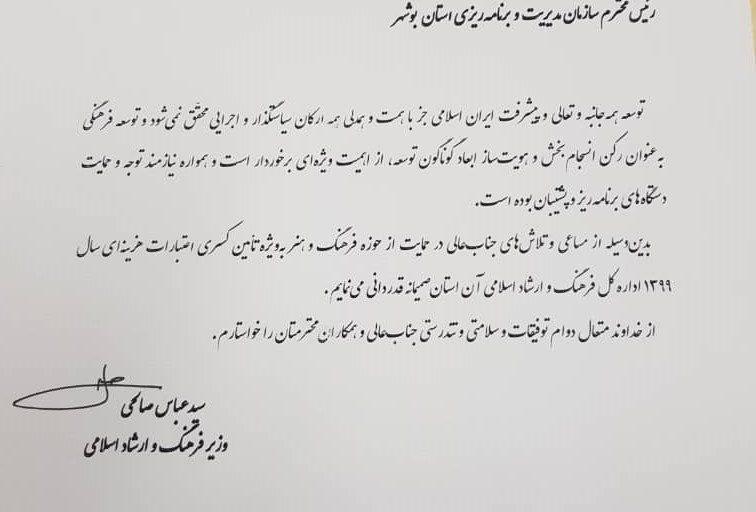 رئیس محترم سازمان مدیریت و برنامه ریزی استان بوشهر
توسعه همه جانبه و تعالی و پیشرفت ایران اسلامی جز با همت و همدلی همه ارکان سیاستگذار و اجرایی محقق نمی‌شود و توسعه فرهنگی
به عنوان رکن انسجام بخش و هویت ساز ابعاد گوناگون توسعه، از اهمیت ویژه‌ای برخوردار است و همواره نیازمند توجه و حمایت
دستگاه های برنامه ریز و پشتیبان بوده است.
بدین‌وسیله از مساعی و تلاش‌های جناب‌عالی در حمایت از حوزه فرهنگ و هنر به‌ویژه تأمین کسری اعتبارات هزینه‌ای سال
۱۳۹۹ اداره کل فرهنگ و ارشاد اسلامی آن استان صمیمانه قدردانی می‌نمایم.
از خداوند متعال دوام توفیقات و سلامتی و تندرستی جناب‌عالی و همکاران محترمتان را خواستارم.
سید عباس صالحی
وزیر فرهنگ و ارشاد اسلامی